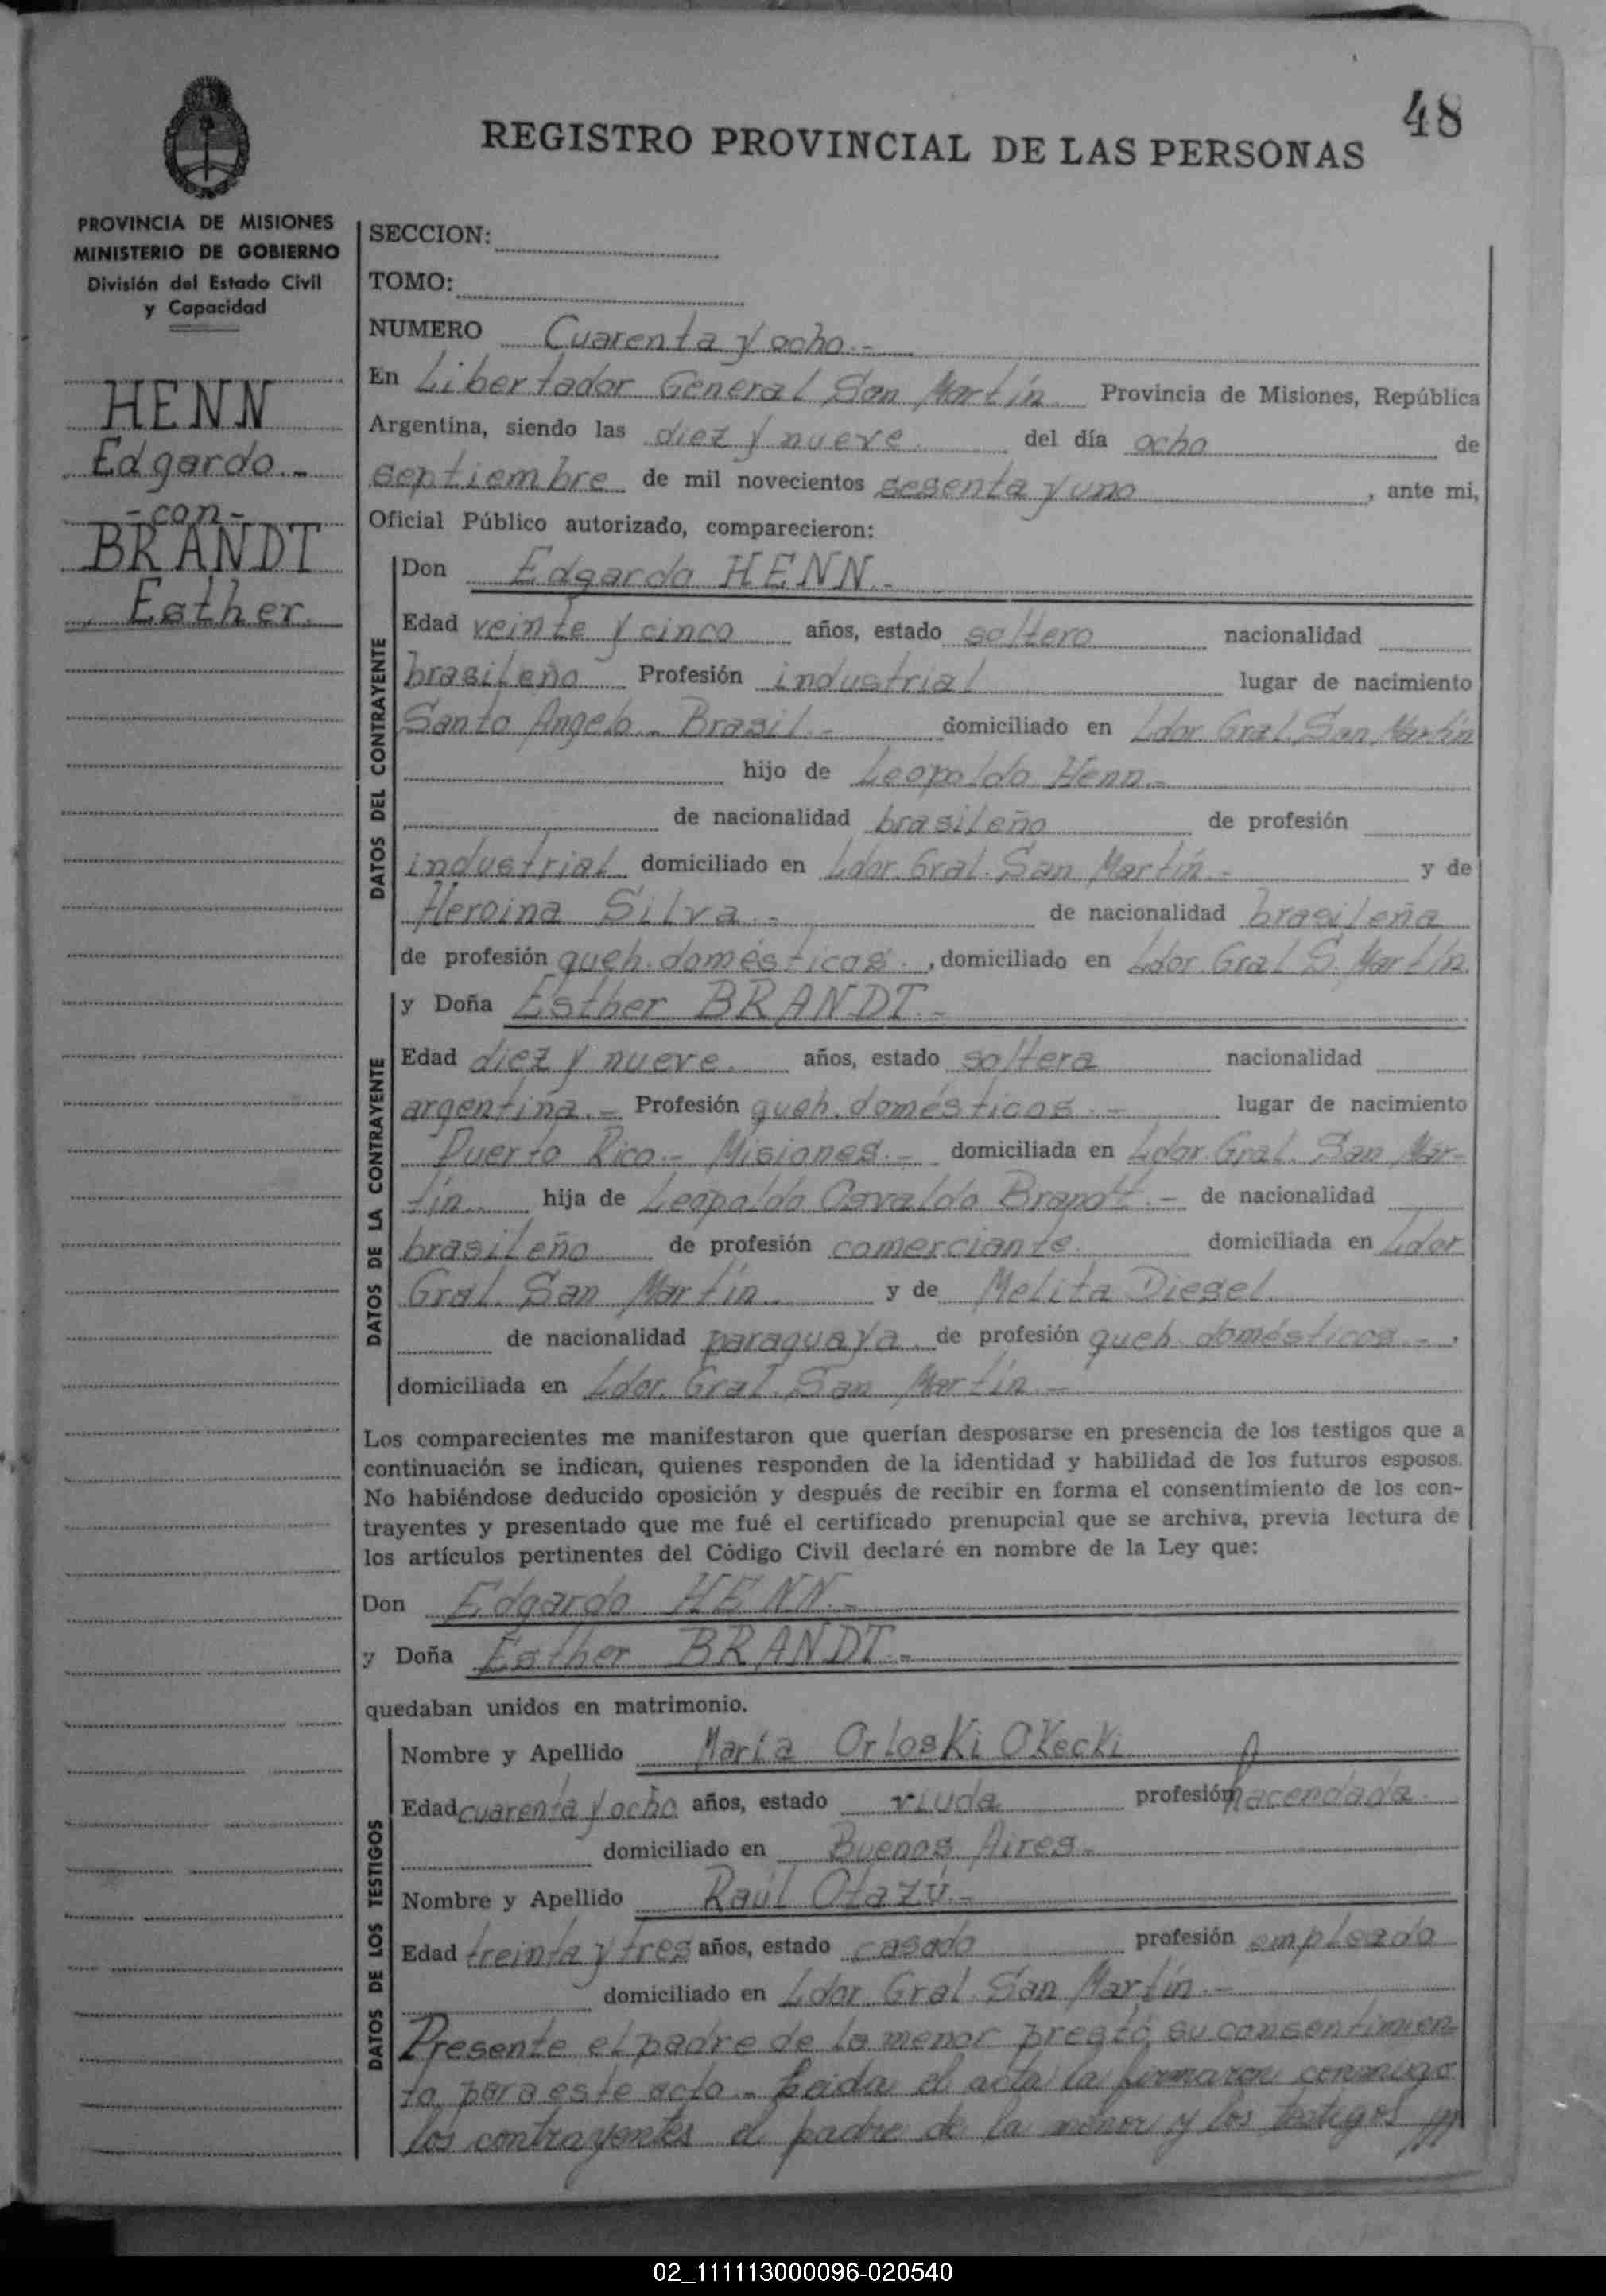 48
REGISTRO PROVINCIAL DE LAS PERSONAS
PROVINCIA DE MISIONES
MINISTERIO DE GOBIERNO
División del Estado Civil
y Capacidad
HENN
Edgardo.-
-con-
BRANDT
Esther.
SECCION:
TOMO:
NUMERO Cuarenta y ocho.-
En Libertador General San Martín Provincia de Misiones, República
Argentina, siendo las diez y nueve del día ocho de
septiembre de mil novecientos sesenta y uno, ante mi,
Oficial Público autorizado, comparecieron:
DATOS DEL CONTRAYENTE
Don Edgardo HENN.-
Edad veinte y cinco años, estado soltero nacionalidad
brasileño Profesión industrial lugar de nacimiento
Santo Angelo - Brasil.- domiciliado en Ldor. Gral. San Martín
hijo de Leopoldo Henn.-
de nacionalidad brasileño de profesión
industrial domiciliado en Ldor. Gral. San Martín.- y de
Heroina Silva.- de nacionalidad brasileña
de profesión queh. domésticos., domiciliado en Ldor. Gral S. Martín.
DATOS DE LA CONTRAYENTE
y Doña Esther BRANDT.-
Edad diez y nueve. años, estado soltera nacionalidad
argentina.- Profesión queh. domésticos.- lugar de nacimiento
Puerto Rico.- Misiones.- domiciliada en Ldor. Gral. San Mar-
tín. hija de Leopoldo Osvaldo Brandt.- de nacionalidad
brasileño de profesión comerciante. domiciliada en Ldor
Gral. San Martín y de Melita Diesel
de nacionalidad paraguaya de profesión queh. domésticos.-,
domiciliada en Ldor. Gral. San Martín.-
Los comparecientes me manifestaron que querían desposarse en presencia de los testigos que a
continuación se indican, quienes responden de la identidad y habilidad de los futuros esposos.
No habiéndose deducido oposición y después de recibir en forma el consentimiento de los con-
trayentes y presentado que me fué el certificado prenupcial que se archiva, previa lectura de
los artículos pertinentes del Código Civil declaré en nombre de la Ley que:
Don Edgardo HENN.-
y Doña Esther BRANDT.-
quedaban unidos en matrimonio.
DATOS DE LOS TESTIGOS
Nombre y Apellido María Orloski Okecki
Edad cuarenta y ocho años, estado viuda profesión hacendada.
domiciliado en Buenos Aires.-
Nombre y Apellido Raúl Otazú.-
Edad treinta y tres años, estado casado profesión empleado
domiciliado en Ldor. Gral. San Martín.-
Presente el padre de la menor prestó su consentimien
to para este acto.- Leida el acta la firmaron conmigo
los contrayentes el padre de la menor y los testigos
02_111113000096-020540